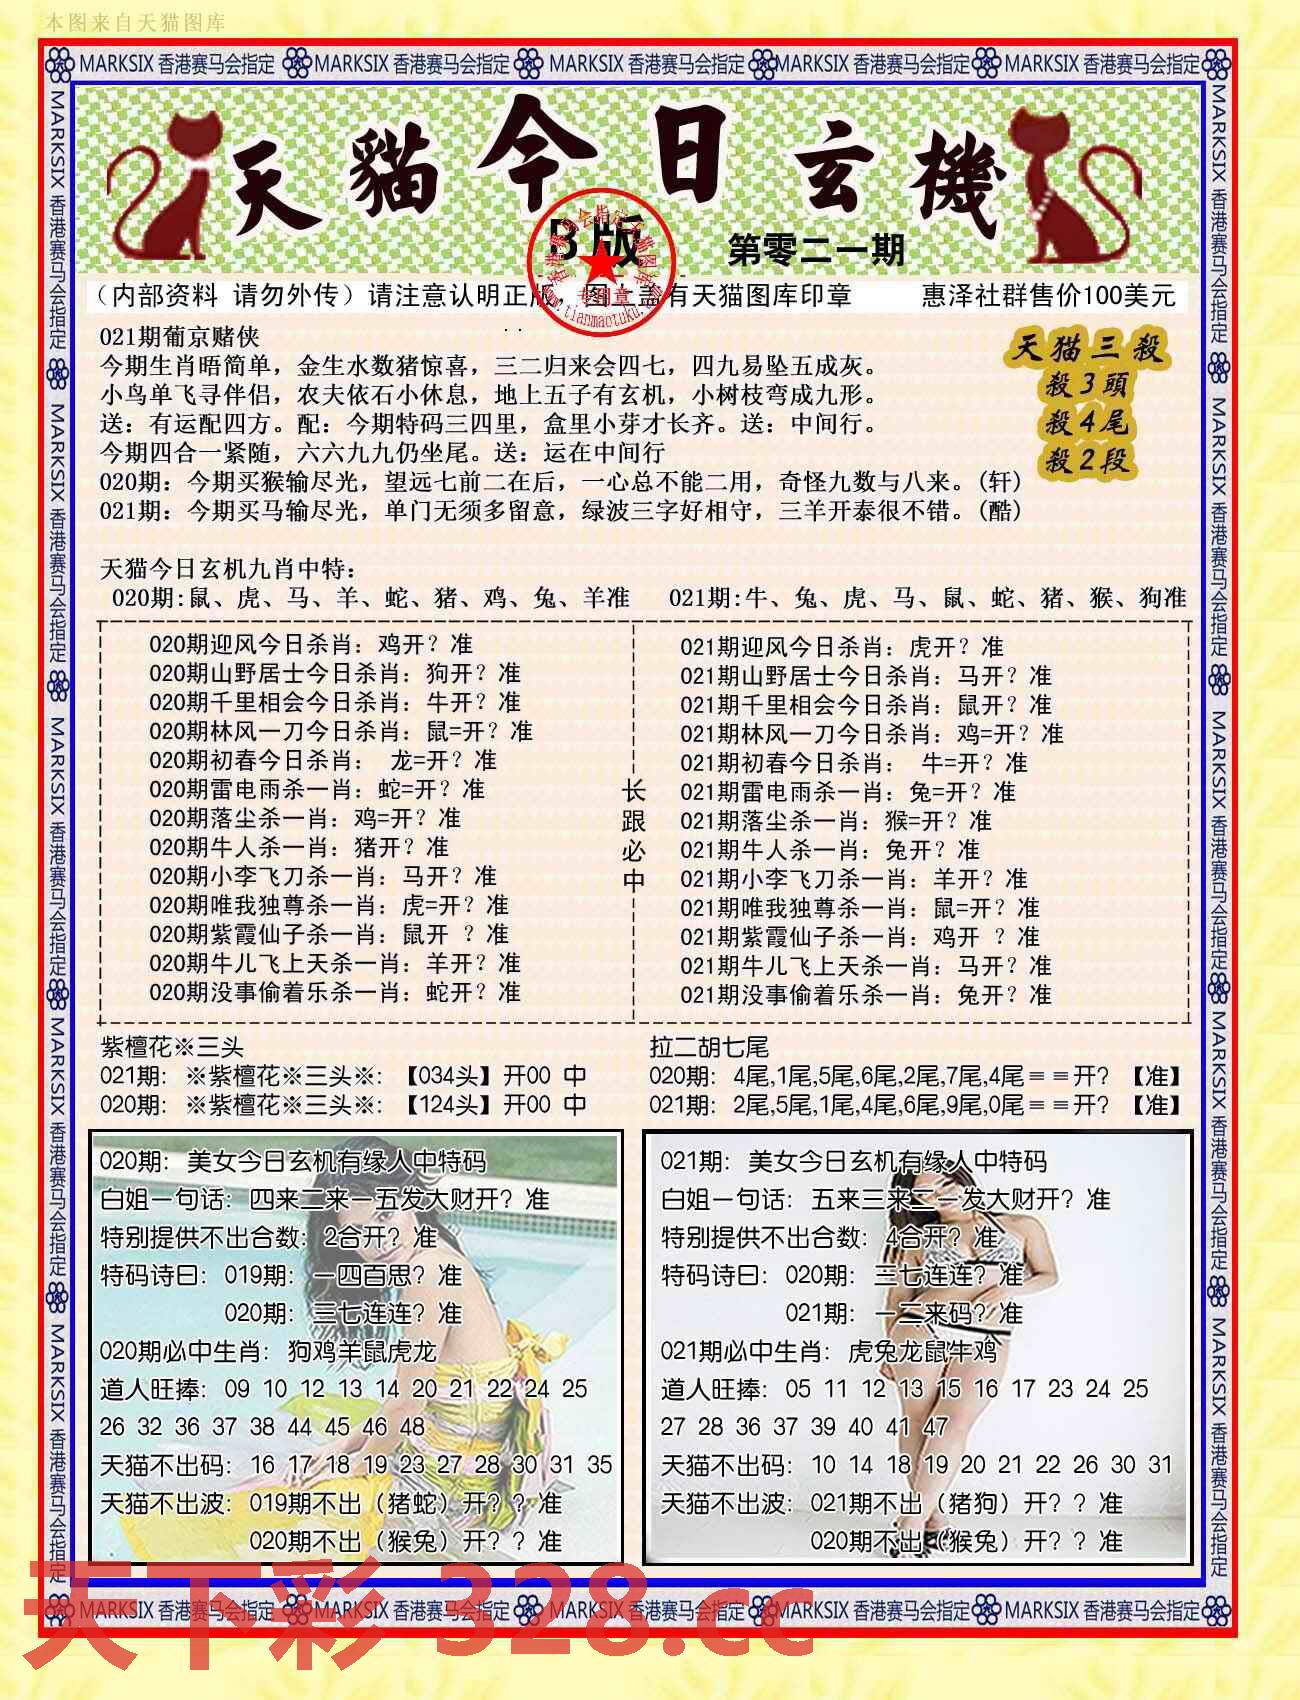 本图来自天猫图库
MARKSIX 香港赛马会指定 MARKSIX 香港赛马会指定 MARKSIX 香港赛马会指定 MARKSIX 香港赛马会指定 MARKSIX 香港赛马会指定
天貓今日玄機
B版
第零二一期
(内部资料 请勿外传)请注意认明正版，图上盖有天猫图库印章 惠泽社群售价100美元
专用章
www.tianmaotuku.com
021期葡京赌侠
今期生肖晤简单，金生水数猪惊喜，三二归来会四七，四九易坠五成灰。
小鸟单飞寻伴侣，农夫依石小休息，地上五子有玄机，小树枝弯成九形。
送：有运配四方。配：今期特码三四里，盒里小芽才长齐。送：中间行。
今期四合一紧随，六六九九仍坐尾。送：运在中间行
020期：今期买猴输尽光，望远七前二在后，一心总不能二用，奇怪九数与八来。(轩)
021期：今期买马输尽光，单门无须多留意，绿波三字好相守，三羊开泰很不错。(酷)
天猫三殺
殺3頭
殺4尾
殺2段
天猫今日玄机九肖中特：
020期:鼠、虎、马、羊、蛇、猪、鸡、兔、羊准 021期:牛、兔、虎、马、鼠、蛇、猪、猴、狗准
020期迎风今日杀肖：鸡开？准
020期山野居士今日杀肖：狗开？准
020期千里相会今日杀肖：牛开？准
020期林风一刀今日杀肖：鼠=开？准
020期初春今日杀肖： 龙=开？准
020期雷电雨杀一肖：蛇=开？准
020期落尘杀一肖：鸡=开？准
020期牛人杀一肖：猪开？准
020期小李飞刀杀一肖：马开？准
020期唯我独尊杀一肖：虎=开？准
020期紫霞仙子杀一肖：鼠开 ？准
020期牛儿飞上天杀一肖：羊开？准
020期没事偷着乐杀一肖：蛇开？准
长跟必中
021期迎风今日杀肖：虎开？准
021期山野居士今日杀肖：马开？准
021期千里相会今日杀肖：鼠开？准
021期林风一刀今日杀肖：鸡=开？准
021期初春今日杀肖： 牛=开？准
021期雷电雨杀一肖：兔=开？准
021期落尘杀一肖：猴=开？准
021期牛人杀一肖：兔开？准
021期小李飞刀杀一肖：羊开？准
021期唯我独尊杀一肖：鼠=开？准
021期紫霞仙子杀一肖：鸡开 ？准
021期牛儿飞上天杀一肖：马开？准
021期没事偷着乐杀一肖：兔开？准
紫檀花※三头
021期：※紫檀花※三头※：【034头】开00 中
020期：※紫檀花※三头※：【124头】开00 中
拉二胡七尾
020期：4尾,1尾,5尾,6尾,2尾,7尾,4尾＝＝开？【准】
021期：2尾,5尾,1尾,4尾,6尾,9尾,0尾＝＝开？【准】
020期：美女今日玄机有缘人中特码
白姐一句话：四来二来一五发大财开？准
特别提供不出合数：2合开？准
特码诗曰：019期：一四百思？准
020期：三七连连？准
020期必中生肖：狗鸡羊鼠虎龙
道人旺捧：09 10 12 13 14 20 21 22 24 25
26 32 36 37 38 44 45 46 48
天猫不出码：16 17 18 19 23 27 28 30 31 35
天猫不出波：019期不出（猪蛇）开？？准
020期不出（猴兔）开？？准
021期：美女今日玄机有缘人中特码
白姐一句话：五来三来二一发大财开？准
特别提供不出合数：4合开？准
特码诗曰：020期：三七连连？准
021期：一二来码？准
021期必中生肖：虎兔龙鼠牛鸡
道人旺捧：05 11 12 13 15 16 17 23 24 25
27 28 36 37 39 40 41 47
天猫不出码：10 14 18 19 20 21 22 26 30 31
天猫不出波：021期不出（猪狗）开？？准
020期不出（猴兔）开？？准
MARKSIX 香港赛马会指定 MARKSIX 香港赛马会指定 MARKSIX 香港赛马会指定 MARKSIX 香港赛马会指定 MARKSIX 香港赛马会指定
MARKSIX 香港赛马会指定 MARKSIX 香港赛马会指定 MARKSIX 香港赛马会指定 MARKSIX 香港赛马会指定 MARKSIX 香港赛马会指定
MARKSIX 香港赛马会指定 MARKSIX 香港赛马会指定 MARKSIX 香港赛马会指定 MARKSIX 香港赛马会指定 MARKSIX 香港赛马会指定
天下彩 328.cc